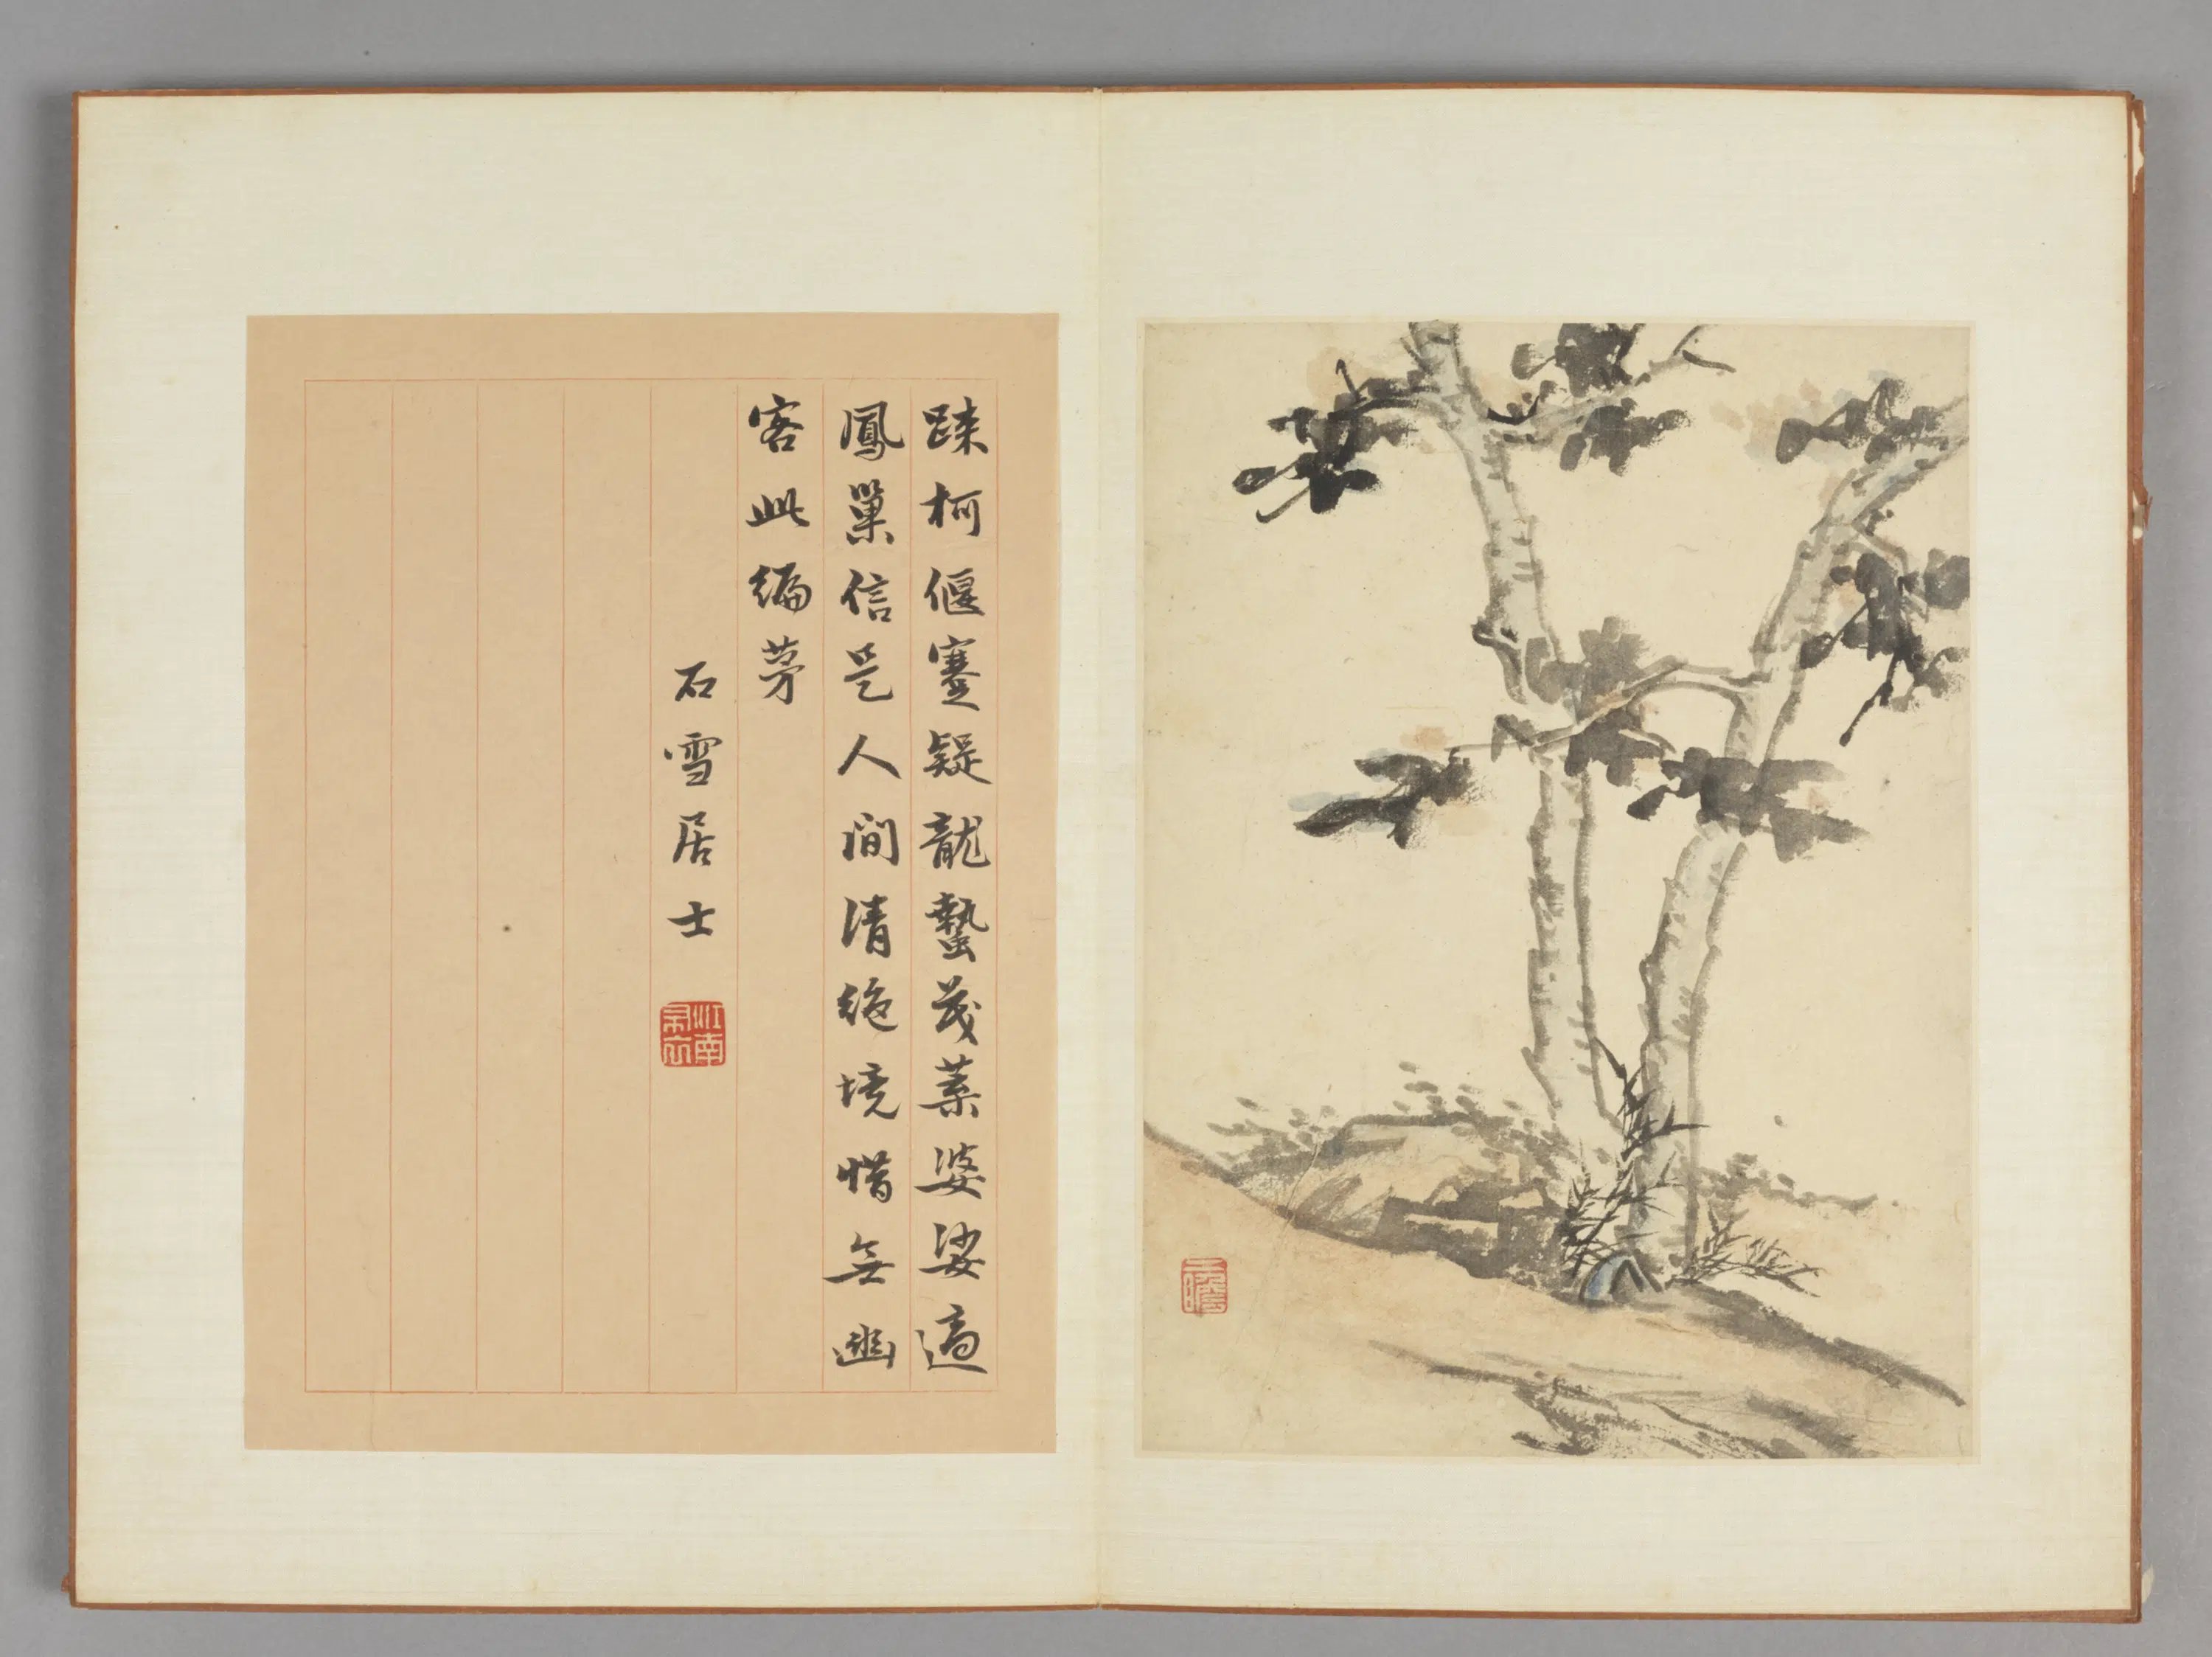 疎柯偃蹇疑龍蟄茂葉婆娑適
鳳巢信是人間清絶境惜無幽
客此編茅
石雪居士